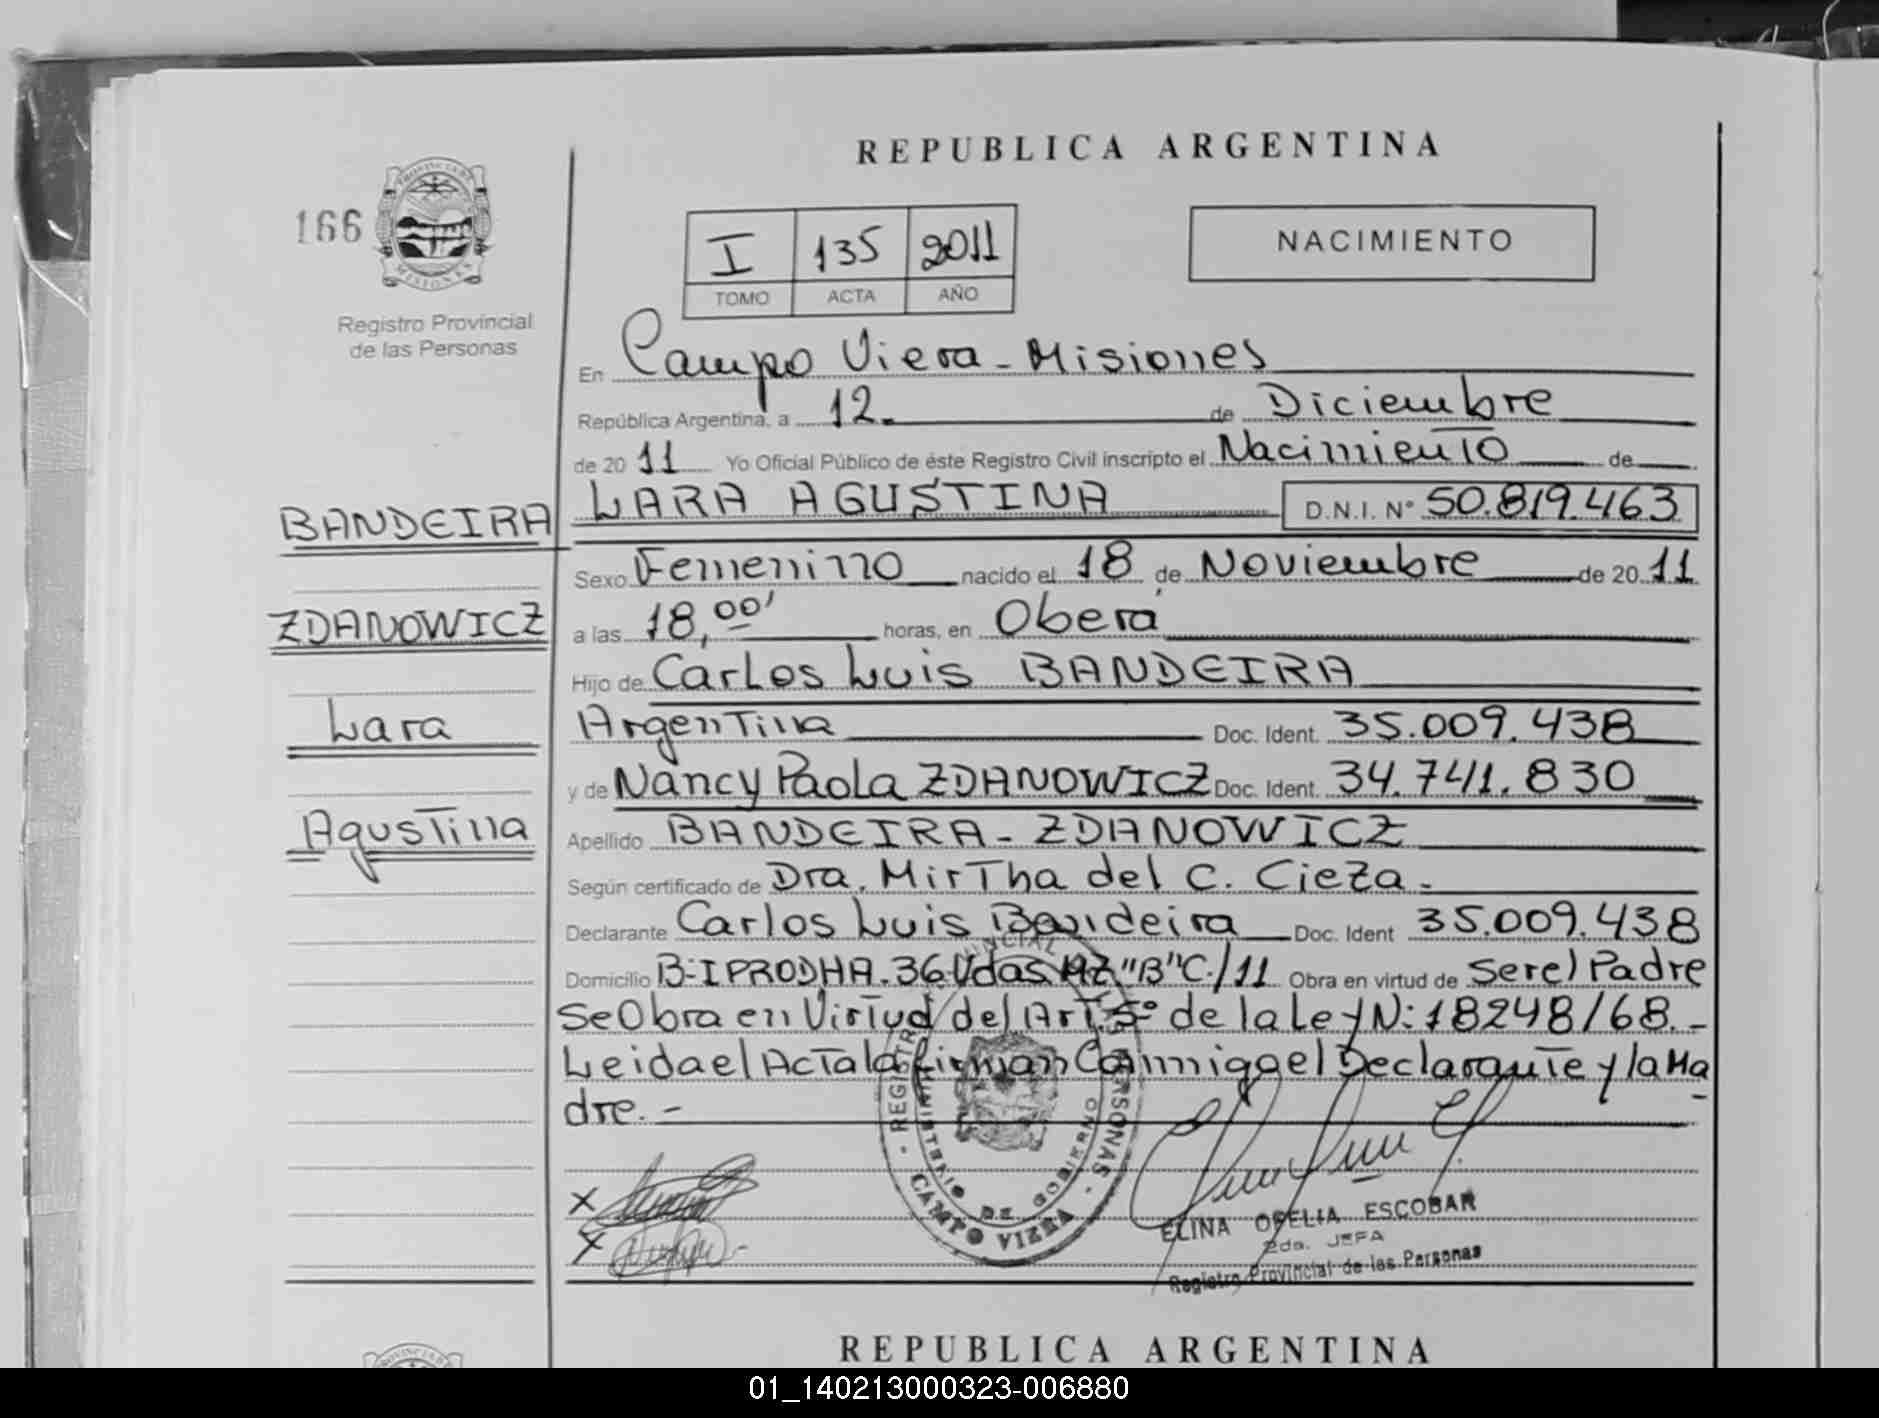 REPUBLICA ARGENTINA
166
PROVINCIA DE
MISIONES
I 135 2011
TOMO ACTA AÑO
NACIMIENTO
Registro Provincial
de las Personas
En Campo Viera - Misiones
República Argentina, a 12. de Diciembre
de 20 11 Yo Oficial Público de éste Registro Civil inscripto el Nacimiento de
BANDEIRA LARA AGUSTINA D.N.I. N° 50.819.463
Sexo Femenino nacido el 18 de Noviembre de 20 11
ZDANOWICZ a las 18,00' horas, en Oberá
Hijo de Carlos Luis BANDEIRA
Lara Argentina Doc. Ident. 35.009.438
y de Nancy Paola ZDANOWICZ Doc. Ident. 34.741.830
Agustina Apellido BANDEIRA - ZDANOWICZ
Según certificado de Dra. Mirtha del C. Cieza.-
Declarante Carlos Luis Bandeira Doc. Ident 35.009.438
Domicilio B-IPRODHA.36 Vdas MZ "B" C/11 Obra en virtud de Ser el Padre
Se Obra en Virtud del Art. 5° de la Ley N: 18248/68.-
Leida el Acta la firman Conmigo el Declarante y la Ma
dre.-
REGISTRO PROVINCIAL DE LAS PERSONAS
MINISTERIO DE GOBIERNO
CAMPO VIERA
X
X
ELINA OFELIA ESCOBAR
2da. JEFA
Registro Provincial de las Personas
REPUBLICA ARGENTINA
PROVINCIA DE
01_140213000323-006880